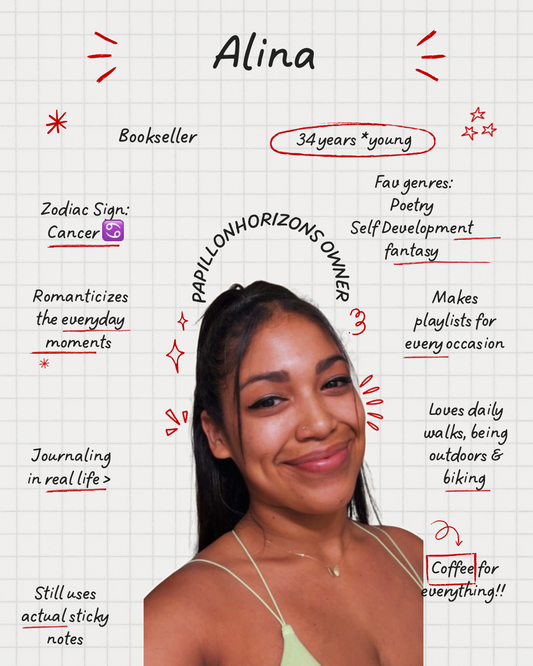 Alina
Bookseller
34 years *young
Fav genres:
Poetry
Self Development
fantasy
Zodiac Sign:
Cancer ♋
PAPILLONHORIZONS OWNER
Romanticizes
the everyday
moments
Makes
playlists for
every occasion
Loves daily
walks, being
outdoors &
biking
Journaling
in real life >
Coffee for
everything!!
Still uses
actual sticky
notes